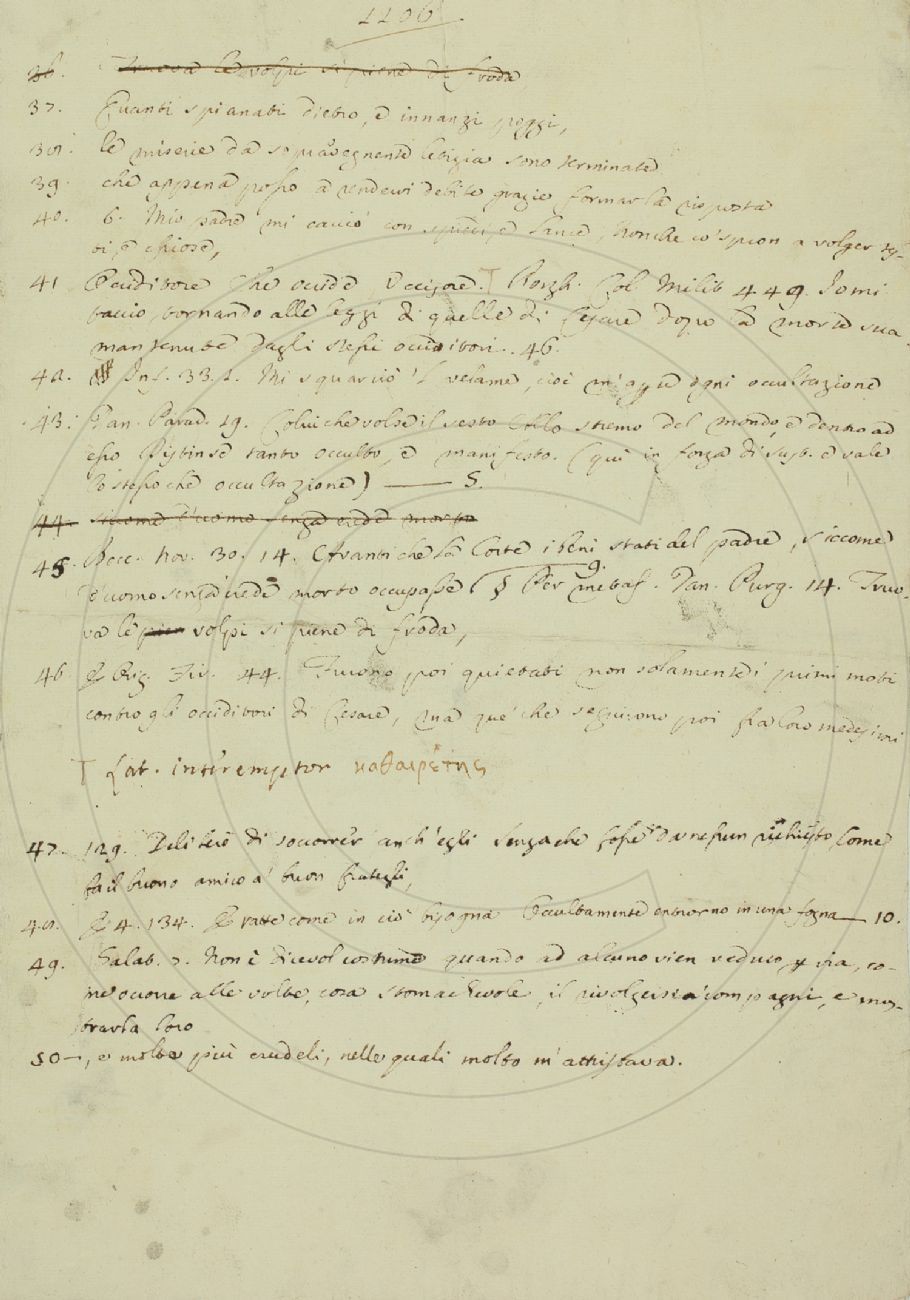 1106.
36. Truova le volpi sì piene di froda
37. Quanti spianati dietro, e innanzi poggi,
38. le miserie da sopravvegnente letizia sono terminate
39. che appena posso a rendervi debite grazie formar la risposta
40. 6. Mio padre mi cacciò con e lance, Nonche co' spron a volger
di, e chiose,
41 Occiditore Che occide Uccisore. T Borgh. Col. Milit. 449. Io mi
taccio, tornando alle leggi di quelle di Cesare dopo la morte sua
mantenute dagli stessi occiditori. 46.
42. Inf. 33. 1. Mi squarciò 'l velame, cioè m' ogni occultazione
43. Dan. Parad. 19. Colui che volse il sesto Allo stremo del mondo, e dentro ad
esso Distinse tanto occulto, e manifesto. (quì in forza di sust. e vale
lo stesso che occultazione) —— 5.
44. siccome d'uomo senza erede morto
45. Bocc. nov. 30. 14. Avanti che la Corte i beni stati del padre, siccome
d'uomo senza erede morto occupasse § 9. Per metaf. Dan. Purg. 14. Truo-
va le volpi sì piene di froda,
46. E Orig. Fir. 44. Furono poi quietati non solamente i primi moti
contro gli occiditori di Cesare, ma que' che seguirono poi fra loro medesimi
T Lat. interemptor καθαιρέτης
47. 129. Deliberò di soccorrer anch' egli senzache fosse da nessun richiesto Come
fa il buono amico a' buon frategli,
48. E 4. 134. E ratto come in ciò bisogna Occultamente entrorno in una fogna — 10.
49. Galat. 7. Non è dicevol costume quando ad alcuno vien veduto per via, co-
me occorre alle volte, cosa stomachevole, il rivolgersi a' compagni, e mos-
trarla loro
50 —, e molte più crudeli, nelle quali molto m' attristava.